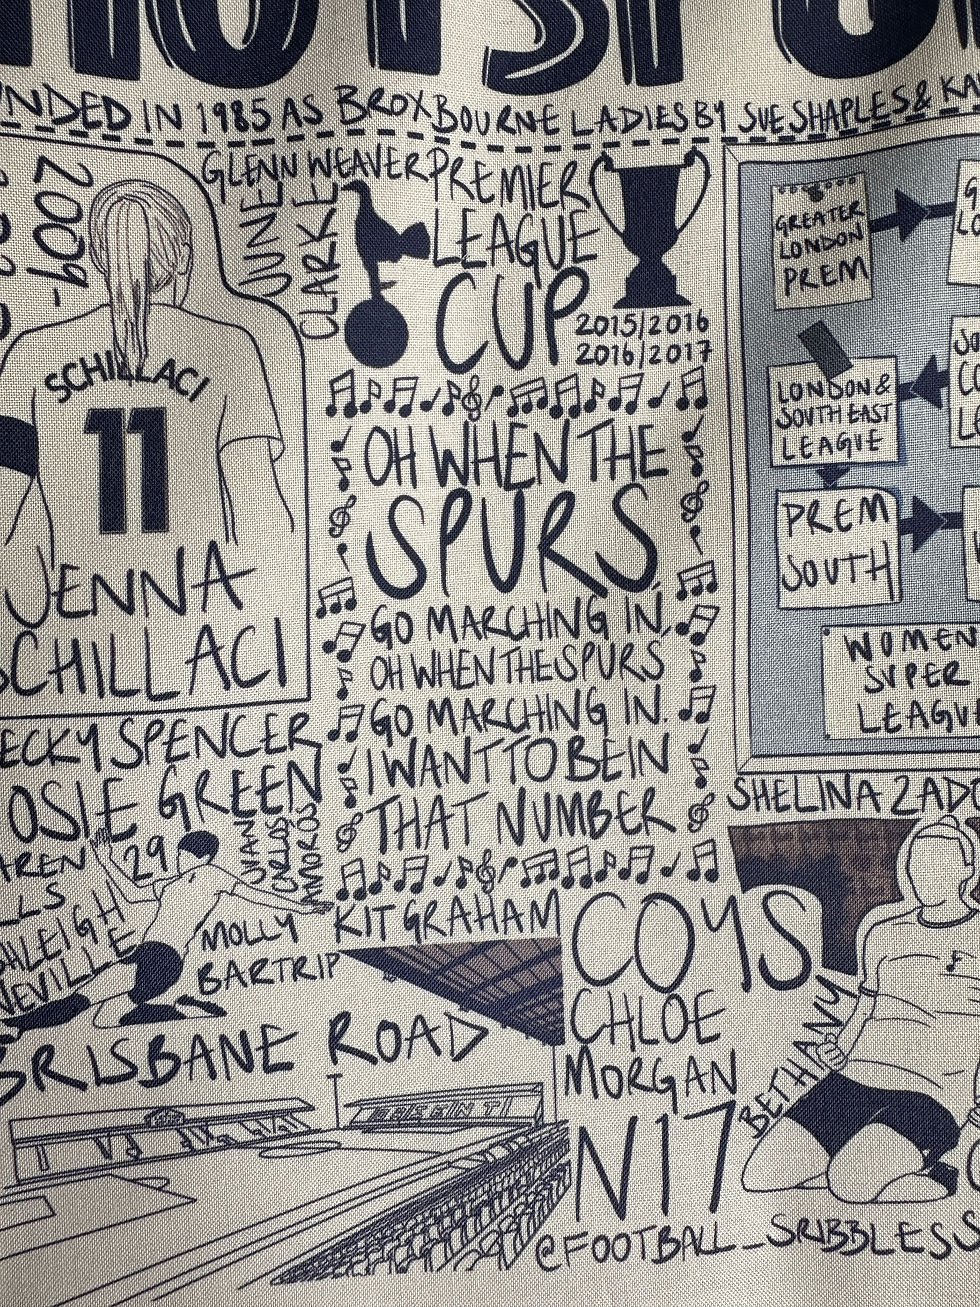 HOTSPU
NDED IN 1985 AS BROXBOURNE LADIES BY SUE SHAPLES & KA
2009-
GLENN WEAVER
JUNE
CLARKE
SCHILLACI
11
JENNA
SCHILLACI
PREMIER
LEAGUE
CUP
2015/2016
2016/2017
OH WHEN THE
SPURS
GO MARCHING IN,
OH WHEN THE SPURS
GO MARCHING IN.
I WANT TO BE IN
THAT NUMBER
GREATER
LONDON
PREM
LONDON &
SOUTH EAST
LEAGUE
PREM
SOUTH
WOMEN
SUPER
LEAGU
ECKY SPENCER
OSIE GREEN
AREN
LLS
29
JUAN
CARLOS
AMOROS
HLEIGH
NEVILLE
MOLLY
BARTRIP
KIT GRAHAM
BRISBANE ROAD
COYS
CHLOE
MORGAN
N17
SHELINA ZADO
BETHANY
@FOOTBALL_SRIBBLESS